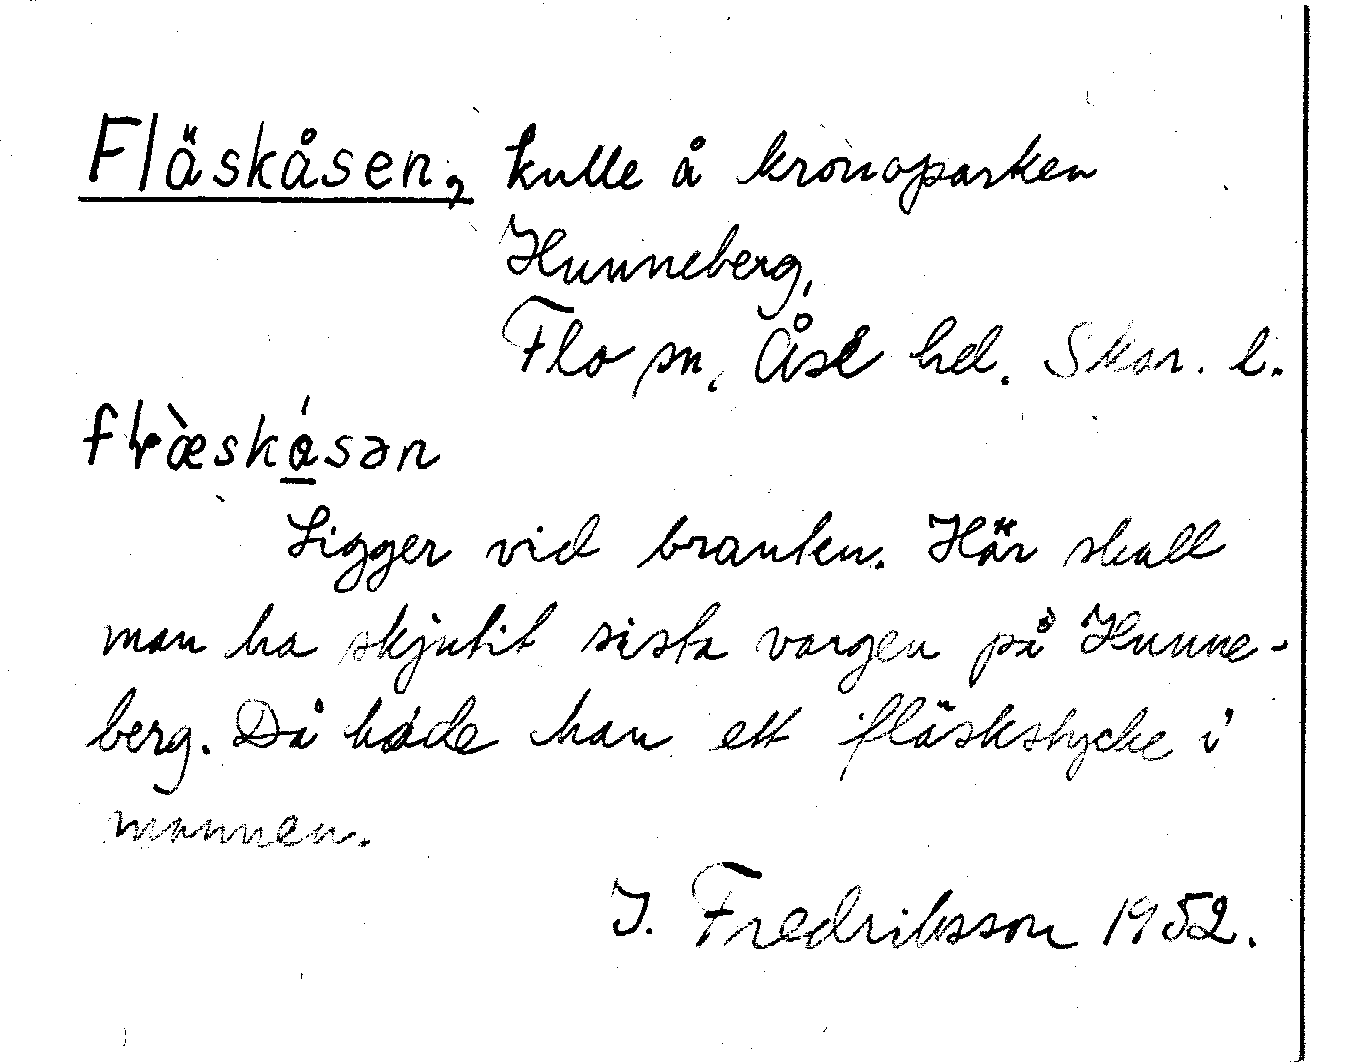 Fläskåsen, kulle å kronoparken
Hunneberg,
Flo sn, Åse hd. Skar. l.
flæ̀skásən
Ligger vid branten. Här skall
man ha skjutit sista vargen på Hunne-
berg. Då hade han ett fläskstycke i
munnen.
I. Fredriksson 1952.